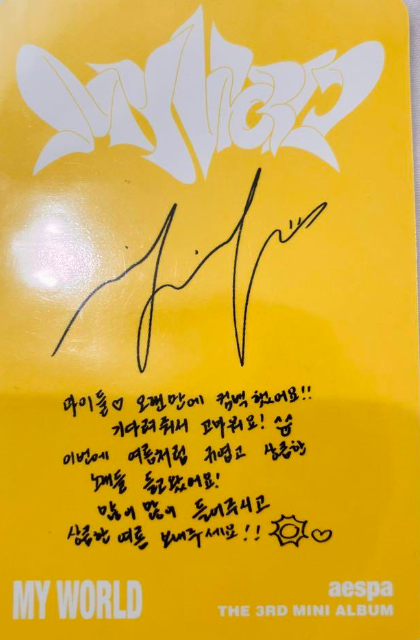 MY WORLD
마이들♡ 오랜만에 컴백 했어요!!
기다려줘서 고마워요!
이번에 여름처럼 귀엽고 상큼한
노래들 들고왔어요!
많이 많이 들어주시고
상큼한 여름 보내주세요!!
MY WORLD
aespa
THE 3RD MINI ALBUM